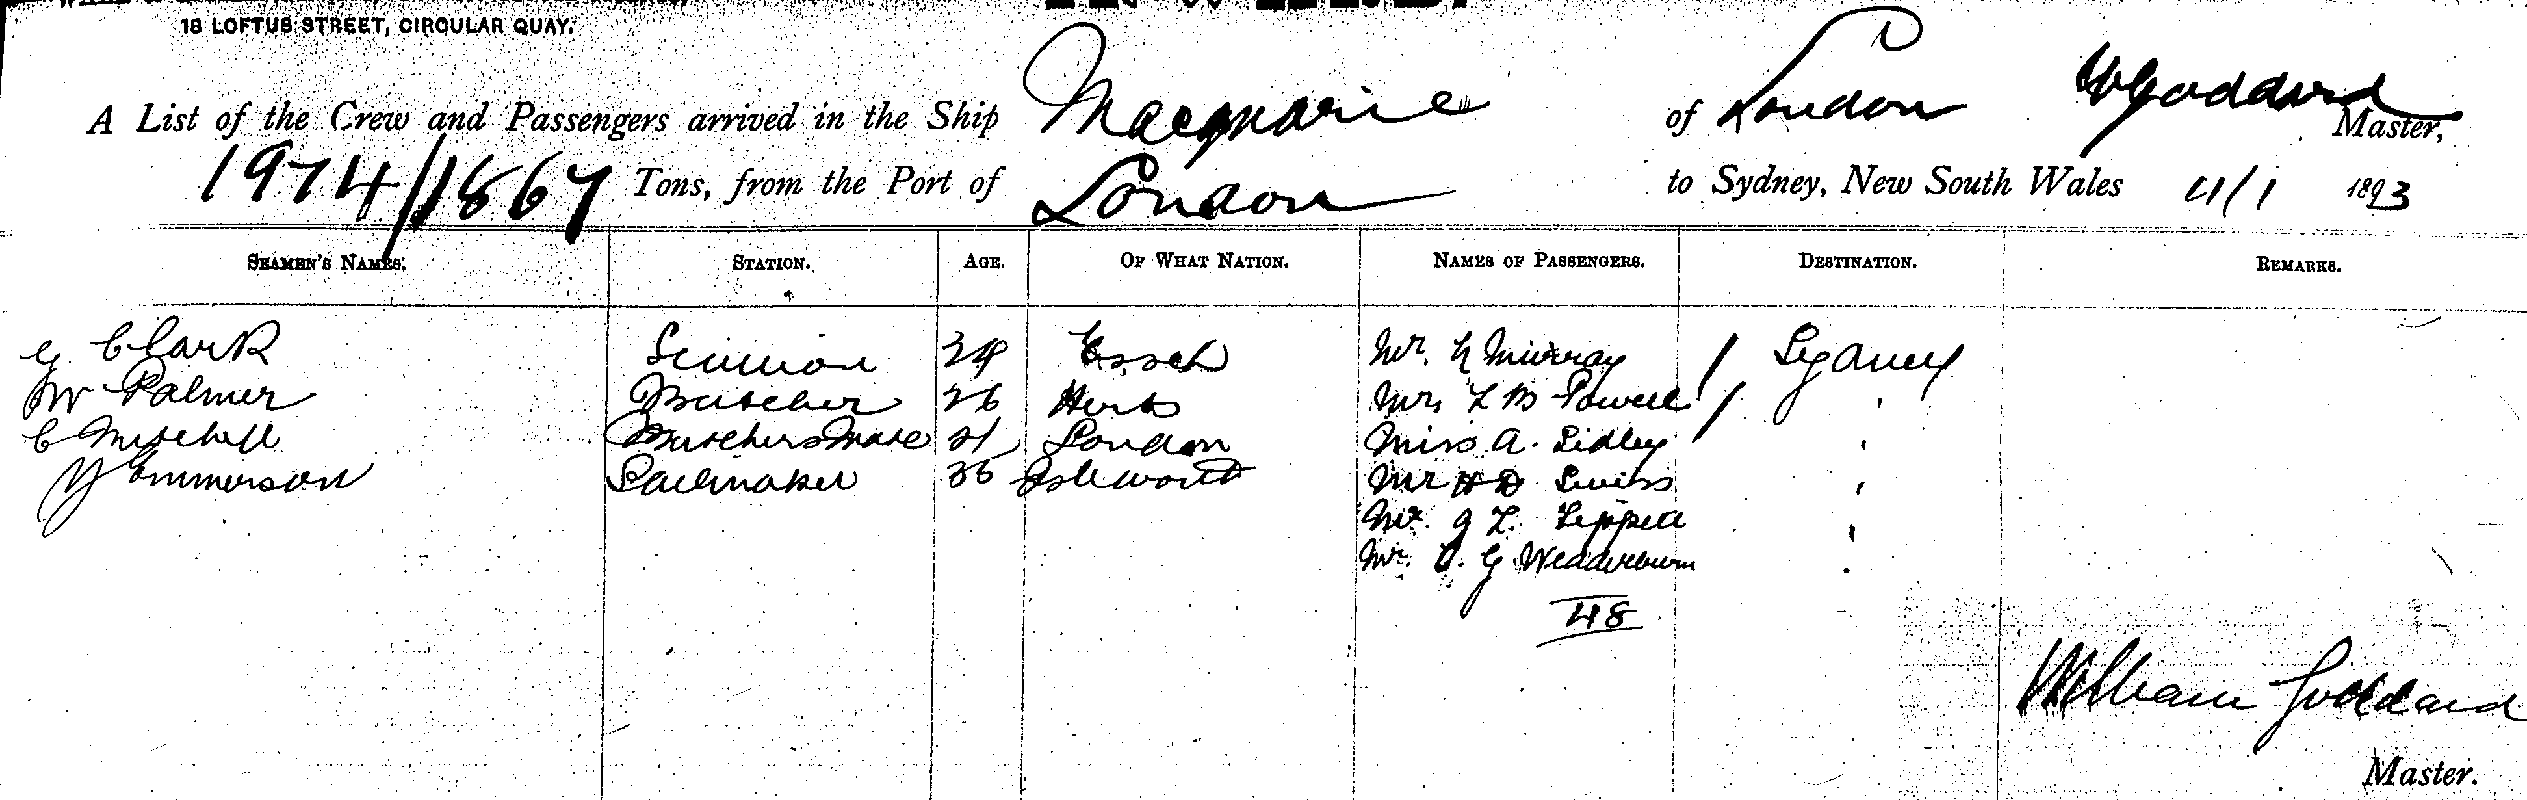 18 LOFTUS STREET, CIRCULAR QUAY.
A List of the Crew and Passengers arrived in the Ship Macquarie of London W Goddard Master,
1974/1867 Tons, from the Port of London to Sydney, New South Wales 4/1 1893
SEAMEN'S NAMES. STATION. AGE. OF WHAT NATION. NAMES OF PASSENGERS. DESTINATION. REMARKS.
G Clark 24 Essex Mr. Murray / Sydney
W Palmer Butcher 26 Herts L B Powell / "
C Mitchell Butchers Mate 21 London Miss A. Sidley "
Emmerson Sailmaker 36 Isleworth Mr H D "
Mr. L. "
Mr. G Wedderburn "
48
William Goddard
Master.